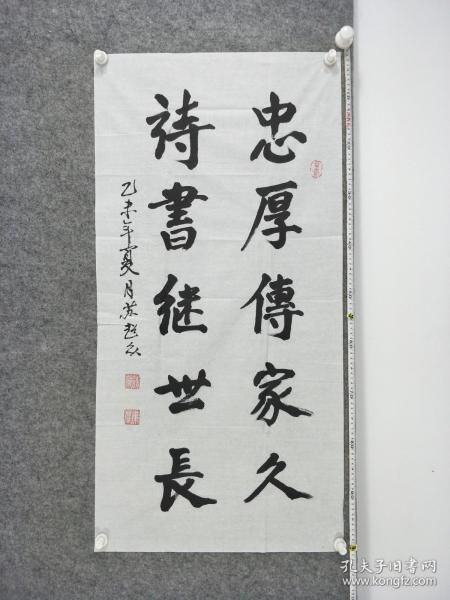 忠厚傳家久
詩書继世長
乙未年夏月苏
孔夫子旧书网
www.kongfz.com